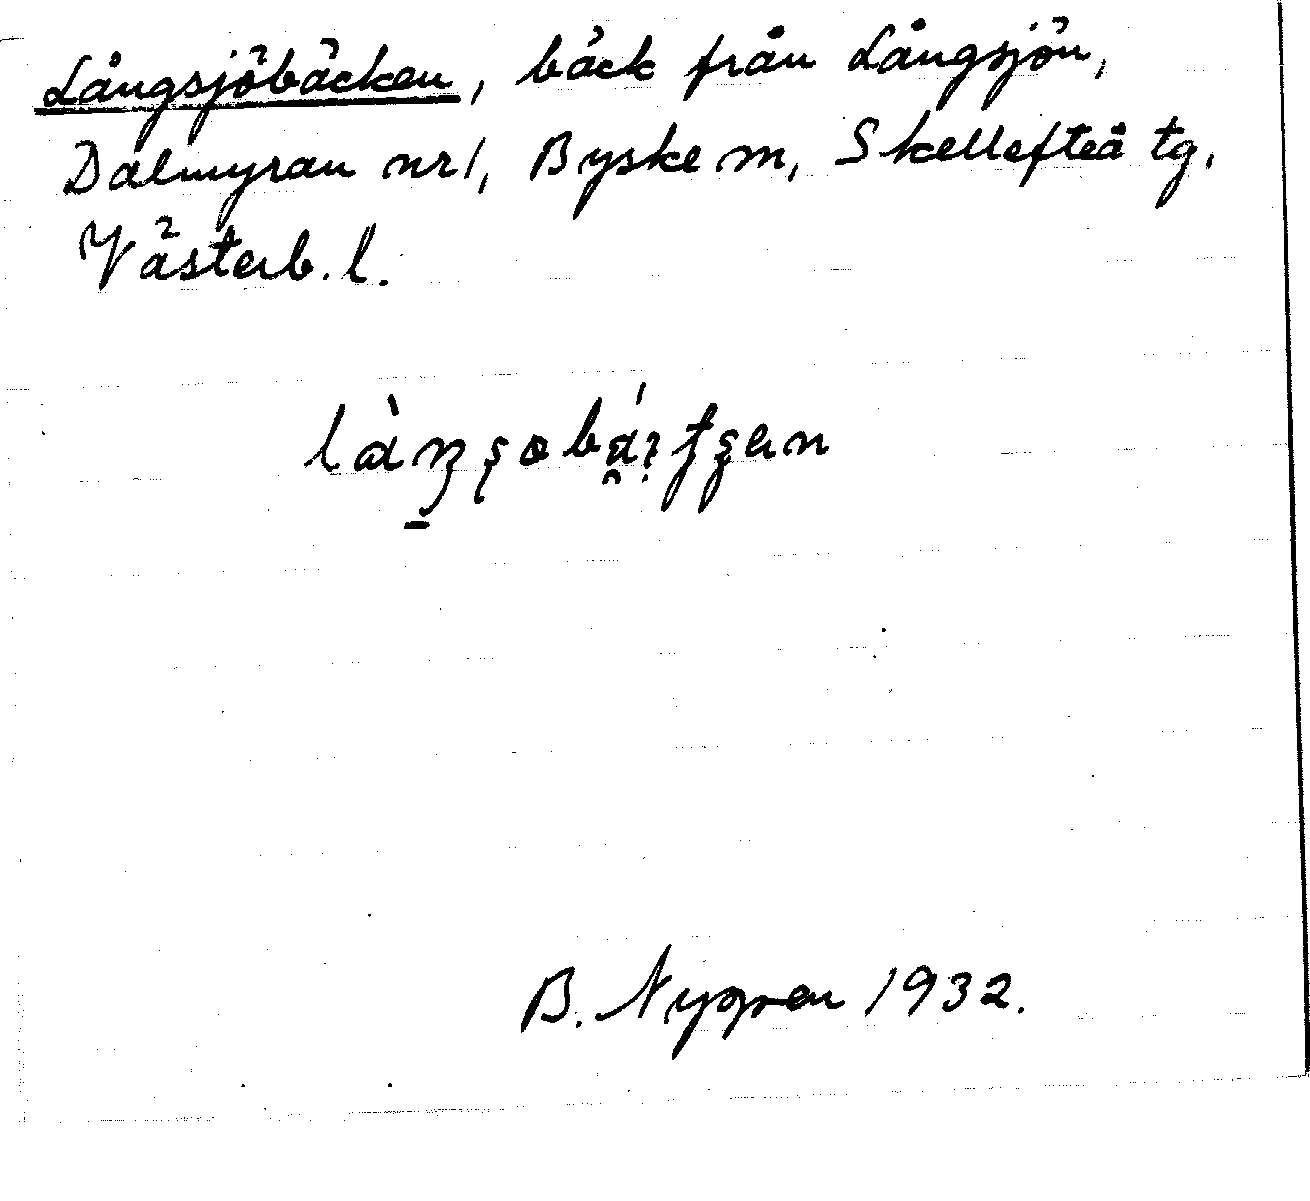 Långsjöbäcken, bäck från Långsjön,
Dalmyran nr 1, Byske sn, Skellefteå tg,
Västerb. l.
B. Nygren 1932.